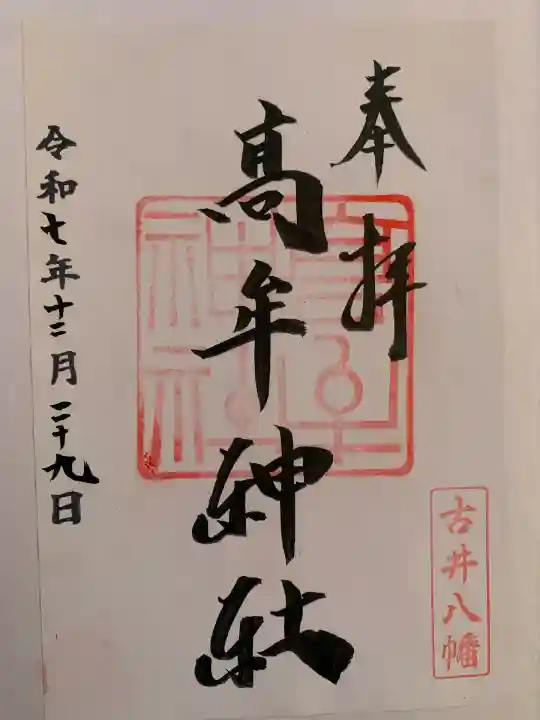 奉拝
古井八幡
高牟神社
高牟神社
令和七年十二月二十九日